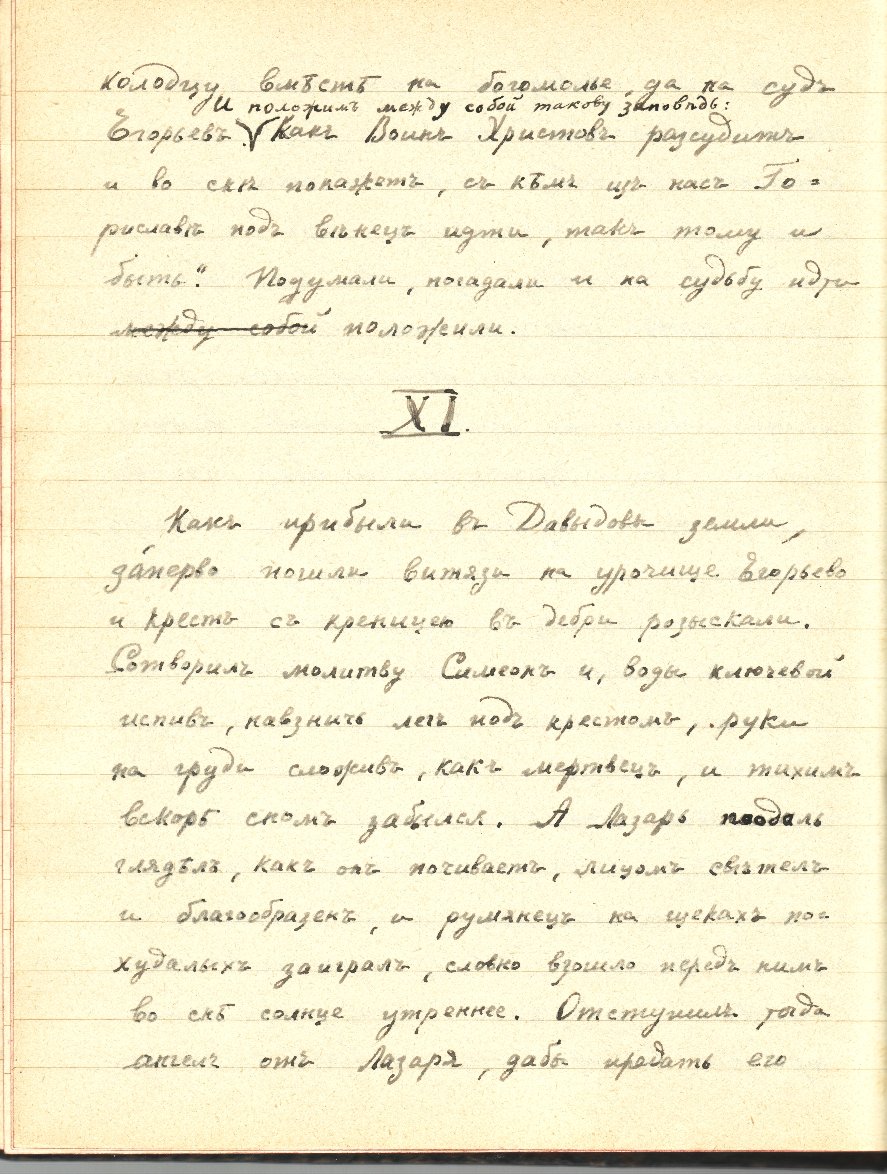 колодцу вмѣстѣ на богомолье, да на судъ
И положимъ между собой такову заповѣдь:
Егорьевъ. Какъ Воинъ Христовъ разсудитъ
и во снѣ покажетъ, съ кѣмъ изъ насъ Го=
риславѣ подъ вѣнецъ идти, такъ тому и
быть." Подумали, погадали и на судьбу идти
между собой положили.
XI.
Какъ прибыли въ Давыдовы земли,
за́перво пошли витязи на урочище Егорьево
и крестъ съ креницею въ дебри розыскали.
Сотворилъ молитву Симеонъ и, воды ключевой
испивъ, навзничь легъ подъ крестомъ, руки
на груди сложивъ, какъ мертвецъ, и тихимъ
вскорѣ сномъ забылся. А Лазарь поодаль
глядѣлъ, какъ онъ почиваетъ, лицомъ свѣтелъ
и благообразенъ, и румянецъ на щекахъ по=
худалыхъ заигралъ, словно взошло передъ нимъ
во снѣ солнце утреннее. Отступилъ тогда
ангелъ отъ Лазаря, дабы предать его